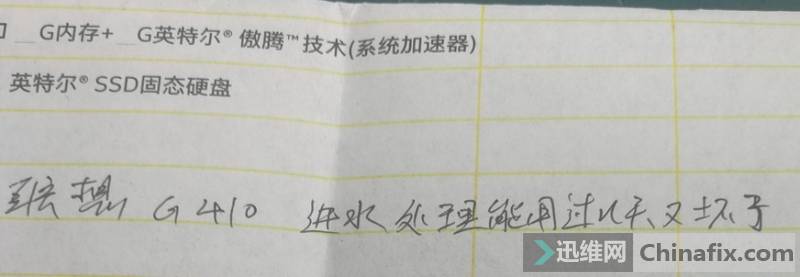 __G内存+__G英特尔®傲腾™技术(系统加速器)
英特尔® SSD固态硬盘
联想 G410 进水处理能用过几天又坏了
迅维网 Chinafix.com